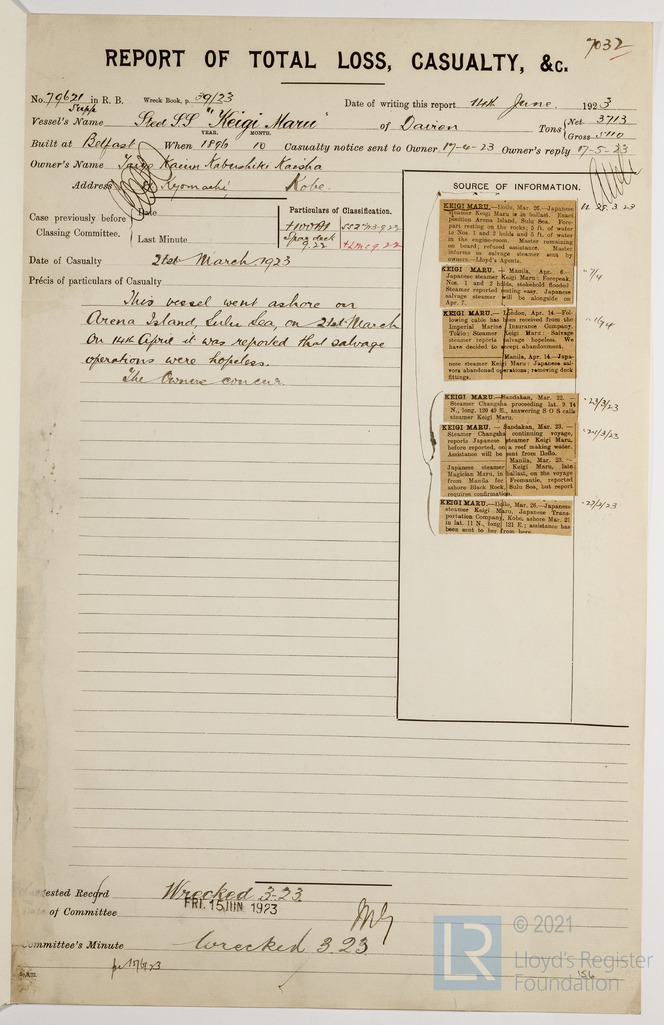 7032
REPORT OF TOTAL LOSS, CASUALTY, &c.
No. 79621 in R. B. Wreck Book, p. 39/23 Date of writing this report 14th June. 1923
Supp
Vessel's Name Sted SS "Keigi Maru" of Dairen Tons Net 3713
YEAR. MONTH. Gross 5110
Built at Belfast When 1896 10 Casualty notice sent to Owner 17-4-23 Owner's reply 17-5-23
Owner's Name Kaiun Kabushiki Kaisha
Address Kyomachi, Kobe.
Case previously before Classing Committee.
Date
Last Minute
Particulars of Classification.
+100A1
Spar deck
9.22
+LMC 9.22
Date of Casualty 21st March 1923
Précis of particulars of Casualty
This vessel went ashore on
Arena Island, Sulu Sea, on 21st March
On 14th April it was reported that salvage
operations were hopeless.
The Owners concur.
SOURCE OF INFORMATION.
KEIGI MARU.—Iloilo, Mar. 26.—Japanese
steamer Keigi Maru is in ballast. Exact
position Arena Island, Sulu Sea. Fore-
part resting on the rocks; 5 ft. of water
in Nos. 1 and 2 holds and 5 ft. of water
in the engine-room. Master remaining
on board; refused assistance. Master
informs us salvage steamer sent by
owners.—Lloyd's Agents.
25.3.23
KEIGI MARU. — Manila, Apr. 6.—
Japanese steamer Keigi Maru: Forepeak,
Nos. 1 and 2 holds, stokehold flooded
Steamer reported resting easy. Japanese
salvage steamer will be alongside on
Apr. 7.
7/4
KEIGI MARU. — London, Apr. 14.—Fol-
lowing cable has been received from the
Imperial Marine Insurance Company,
Tokio: Steamer Keigi Maru: Salvage
steamer reports salvage hopeless. We
have decided to accept abandonment.
Manila, Apr. 14.—Japa-
nese steamer Keigi Maru: Japanese sal-
vors abandoned operations; removing deck
fittings.
KEIGI MARU.—Sandakan, Mar. 22.—
Steamer Changsha proceeding lat. 9 14
N., long. 120 49 E., answering S O S calls
steamer Keigi Maru.
23/3/23
KEIGI MARU. — Sandakan, Mar. 23.—
Steamer Changsha continuing voyage,
reports Japanese steamer Keigi Maru,
before reported, on a reef making water.
Assistance will be sent from Iloilo.
Manila, Mar. 23.—
Japanese steamer Keigi Maru, late
Magician Maru, in ballast, on the voyage
from Manila for Fremantle, reported
ashore Black Rock, Sulu Sea, but report
requires confirmation.
24/3/23
KEIGI MARU.—Iloilo, Mar. 26.—Japanese
steamer Keigi Maru, Japanese Trans-
portation Company, Kobe, ashore Mar. 21
in lat. 11 N., long. 121 E.; assistance has
been sent to her from here.
Suggested Record Wrecked 3-23.
Date of Committee FRI. 15 JUN 1923
Committee's Minute Wrecked 3.23
156
LR
© 2021
Lloyd's Register
Foundation